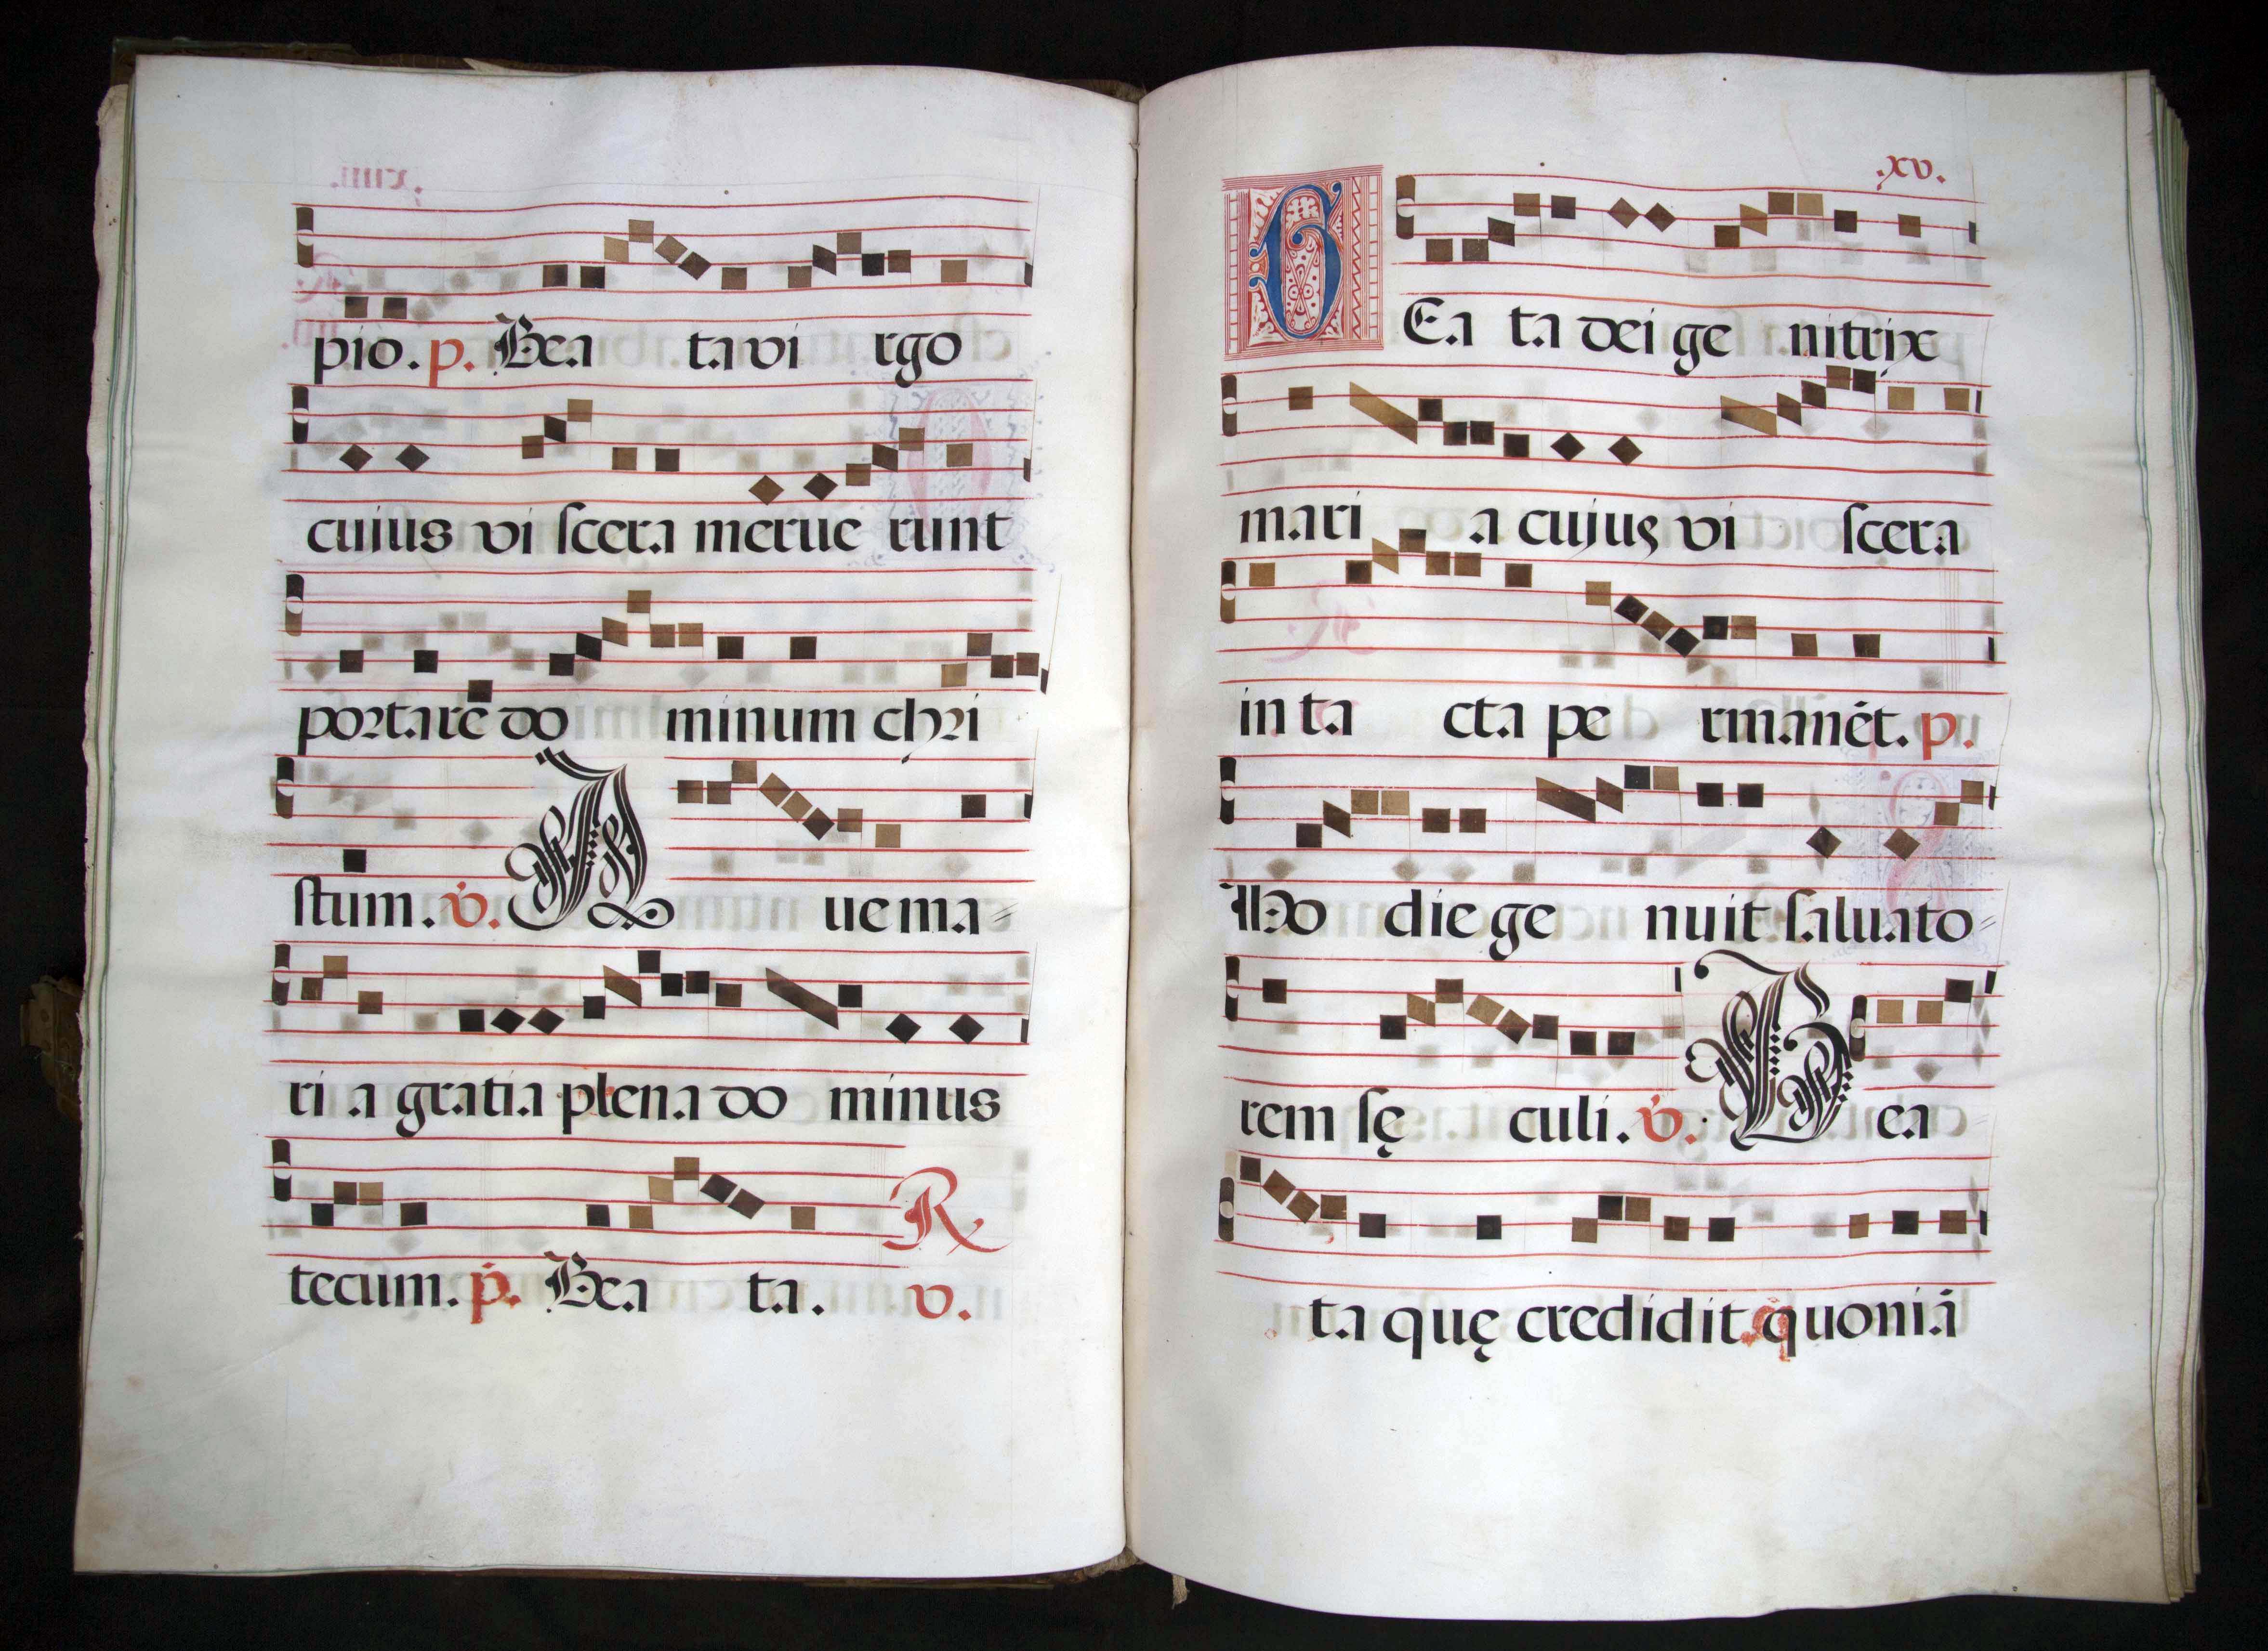 pio. p. Bea ta vi rgo
cuius vi scera merue runt
portare do minum chri
stum. v. A ue ma-
ri a gratia plena do minus
tecum. p. Bea ta. R v.
.xv.
BEa ta dei ge nitrix
mari a cujus vi scera
in ta cta pe rmanēt. p.
Ho die ge nuit saluato-
rem sę culi. v. B ea
ta quę credidit quoniā